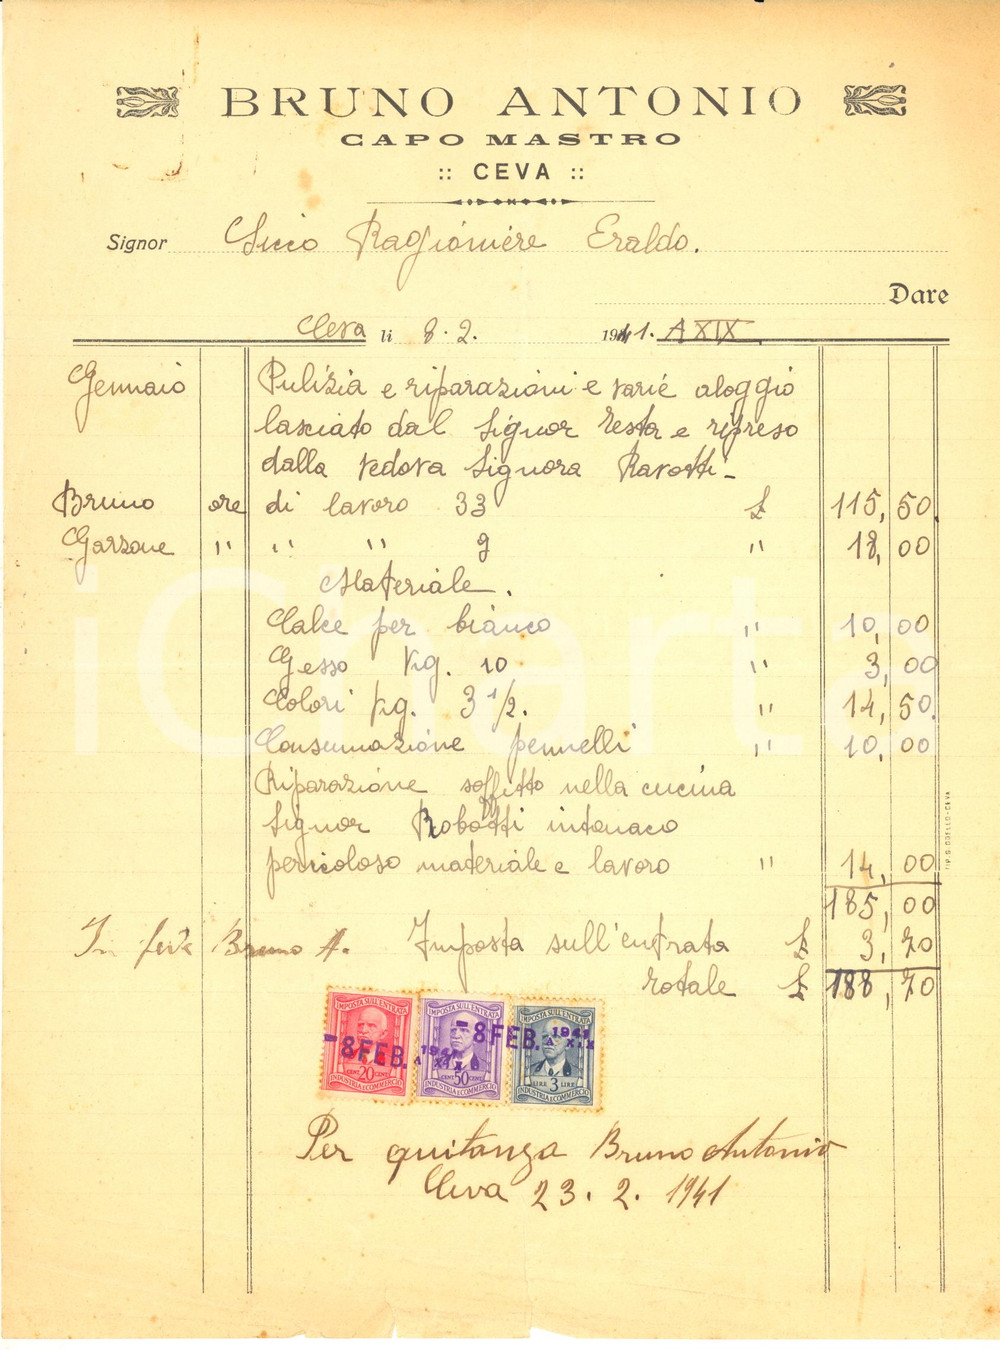 BRUNO ANTONIO
CAPO MASTRO
:: CEVA ::
Signor Sicco Ragioniere Eraldo.
Dare
Ceva li 8.2. 1941. A XIX
Gennaio Pulizia e riparazioni e varie aloggio
lasciato dal Signor Testa e ripreso
dalla vedova Signora Ravotti-
Bruno ore di lavoro 33 £ 115,50
Garzone " " " 9 " 18,00
Materiale.
Calce per bianco " 10,00
Gesso Kg. 10 " 3,00
Colori Kg. 3 1/2. " 14,50
Consumazione pennelli " 10,00
Riparazione soffitto nella cucina
Signor Robotti intonaco
pericoloso materiale e lavoro " 14,00
185,00
In fede Bruno A. Imposta sull'entrata £ 3,70
Totale £ 188,70
IMPOSTA SULL'ENTRATA IMPOSTA SULL'ENTRATA IMPOSTA SULL'ENTRATA
-8 FEB. 1941 A XIX -8 FEB. 1941 A XIX
CENT 20 CENT CENT 50 CENT LIRE 3 LIRE
INDUSTRIA E COMMERCIO INDUSTRIA E COMMERCIO INDUSTRIA E COMMERCIO
Per quitanza Bruno Antonio
Ceva 23.2.1941
iCharta